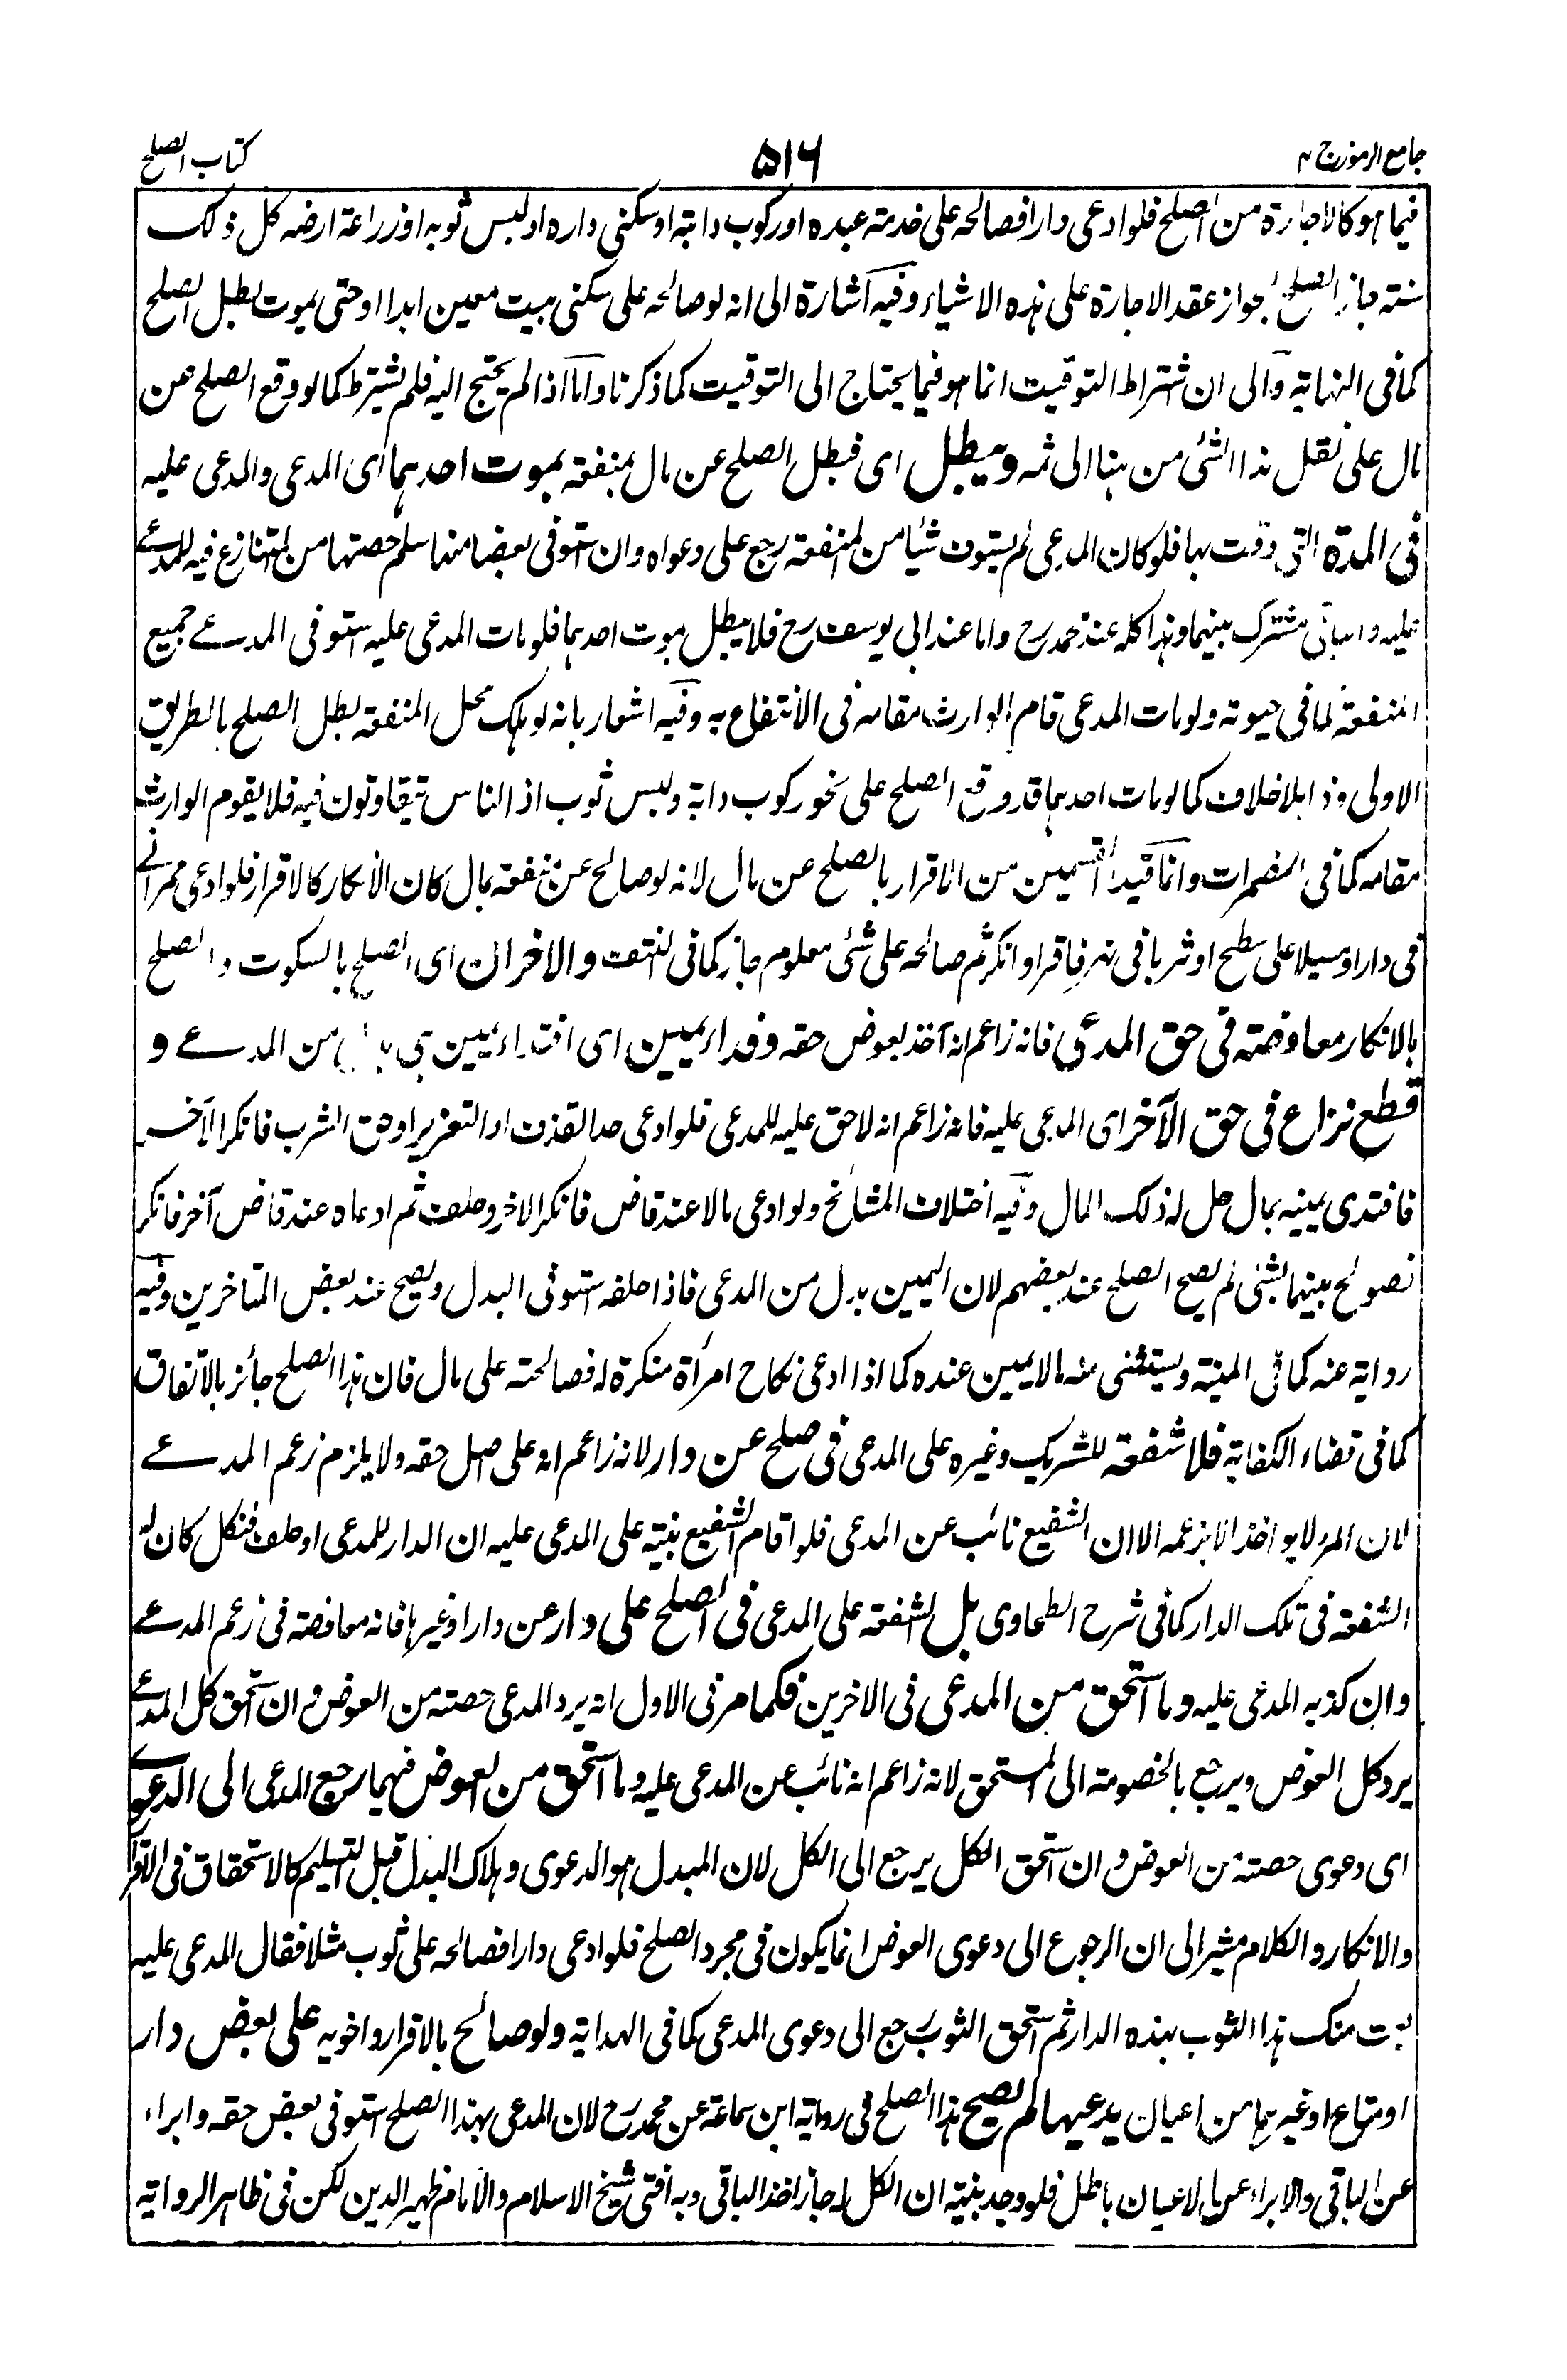 جامع الرموز ج ٢
٥١٦
كتاب الصلح
فيما هو كالاجارة من الصلح فلو ادعى دارا فصالحه على خدمة عبده او ركوب دابته او سكنى داره او لبس ثوبه او زراعة ارضه كل ذلك
سنة جاز الصلح لجواز عقد الاجارة على هذه الاشياء وفيه اشارة الى انه لو صالحه على سكنى بيت معين ابدا او حتى يموت لبطل الصلح
كما في النهاية والى ان اشتراط التوقيت انما هو فيما يحتاج الى التوقيت كما ذكرنا واما اذا لم يحتج اليه فلم يشترط كما لو وقع الصلح عن
مال على نقل هذا الشئ من هنا الى ثمه ويبطل اى فبطل الصلح عن مال بمنفعة بموت احدهما اى المدعى والمدعى عليه
في المدة التي وقت بها فلو كان المدعى لم يستوف شيئا من المنفعة رجع على دعواه وان استوفى بعضا منها سلم حصتها من المتنازع فيه للمدعى
عليه والباقى مشترك بينهما وهذا كله عند محمد رح واما عند ابي يوسف رح فلا يبطل بموت احدهما فلو مات المدعى عليه استوفى المدعى جميع
المنفعة كما في حيوته ولو مات المدعى قام الوارث مقامه في الانتفاع به وفيه اشعار بانه لو هلك محل المنفعة بطل الصلح بالطريق
الاولى وهذا بلا خلاف كما لو مات احدهما وقد وقع الصلح على نحو ركوب دابة ولبس ثوب اذ الناس يتفاوتون فيه فلا يقوم الوارث
مقامه كما في المضمرات وانما قيد القسمين من الاقرار بالصلح عن مال لانه لو صالح عن منفعة بمال كان الانكار كالاقرار فلو ادعى ممرا في
في دار او مسيلا على سطح او شربا في نهر فاقر او انكر ثم صالحه على شئ معلوم جاز كما في النتف والاخران اى الصلح بالسكوت والصلح
بالانكار معاوضة في حق المدعى فانه زاعم انه آخذ لعوض حقه وفداء يمين اى افتداء يمين هي من المدعى و
قطع نزاع في حق الآخر اى المدعى عليه فانه زاعم انه لا حق عليه للمدعى فلو ادعى حد القذف او التعزير او حق الشرب فانكر الآخر
فافتدى يمينه بمال حل له ذلك المال وفيه اختلاف المشائخ ولو ادعى مالا عند قاض فانكر الآخر وحلف ثم ادعاه عند قاض آخر فانكر
فصولح بينهما بشئ لم يصح الصلح عند بعضهم لان اليمين بدل من المدعى فاذا حلفه استوفى البدل ويصح عند بعض المتاخرين وفيه
رواية عنه كما في المنية ويستثنى منه مالا يمين عنده كما اذا ادعى نكاح امرأة منكرة له فصالحته على مال فان هذا الصلح جائز بالاتفاق
كما في قضاء الكفاية فلا شفعة للشريك وغيره على المدعى في صلح عن دار لانه زاعم انه على اصل حقه ولا يلزم زعم المدعى
لان المرء لا يواخذ الا بزعمه الا ان الشفيع نائب عن المدعى فلو اقام الشفيع بينة على المدعى عليه ان الدار للمدعى او حلف فنكل كان له
الشفعة في تلك الدار كما في شرح الطحاوى بل الشفعة على المدعى في الصلح على دار عن دار او غيرها فانه معاوضة في زعم المدعى
وان كذبه المدعى عليه وما استحق من المدعى في الاخرين فكما مر في الاول انه يرد المدعى حصته من العوض وان استحق كل المدعى
يرد كل العوض ويرجع بالخصومة الى المستحق لانه زاعم انه نائب عن المدعى عليه وما استحق من العوض فيهما رجع المدعى الى الدعوى
اى دعوى حصته من العوض وان استحق الكل يرجع الى الكل لان المبدل هو الدعوى وهلاك البدل قبل التسليم كالاستحقاق في الاقرار
والانكار والكلام مشير الى ان الرجوع الى دعوى العوض انما يكون في مجرد الصلح فلو ادعى دارا فصالحه على ثوب مثلا فقال المدعى عليه
بعت منك هذا الثوب بهذه الدار ثم استحق الثوب رجع الى دعوى المدعى كما في الهداية ولو صالح بالاقرار واخويه على بعض دار
او متاع او غيرهما من اعيان يدعيها لم يصح هذا الصلح في رواية ابن سماعة عن محمد رح لان المدعى بهذا الصلح استوفى بعض حقه وابراء
عن الباقى والابراء عن الاعيان باطل فلو وجد بينة ان الكل له جاز اخذ الباقى وبه افتى شيخ الاسلام والامام ظهير الدين لكن في ظاهر الرواية